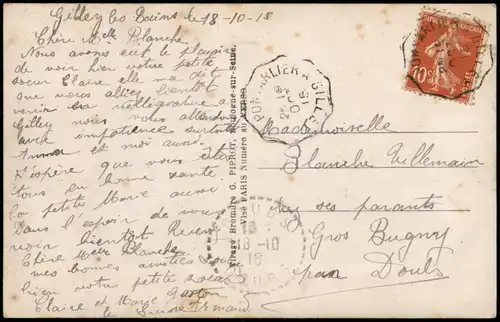 Gilley les Bains le 18-10-15
Chère Melle Blanche
Nous avons eut le plaisir
de voir hier votre petite
soeur Claire elle ma dit
que vous alliez bientôt
venir
Gilley nous vous attendons
avec impatience surtout
et moi aussi.
J'éspère que vous êtes
tous en bonne santé.
la petite Marie aussi
Dans l'espoir de vous
voir bientôt Recevez
Chère Melle Blanche
mes bonnes amitiés
bien votre petite soeur
Claire et Marie Gaston
le Armand
Virage Bromure G. PIPROT, Boulogne-sur-Seine.
Visé PARIS Numéro au VERSO.
PONTARLIER A GILLEY
15
10c
Mademoiselle
Blanche Villemain
chez ses parents
Gros Bugny
par Doubs
18-10